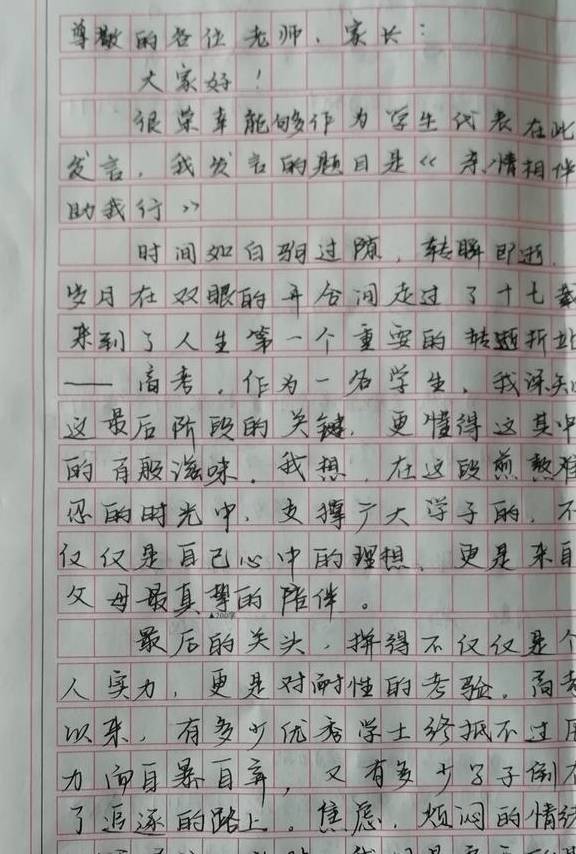 尊敬的各位老师、家长：
大家好！
很荣幸能够作为学生代表在此
发言，我发言的题目是《亲情相伴
助我行》
时间如白驹过隙，转瞬即逝，
岁月在双眼的开合间走过了十七载
来到了人生第一个重要的转折站
——高考，作为一名学生，我深知
这最后阶段的关键，更懂得这其中
的百般滋味。我想，在这段煎熬难
忍的时光中，支撑广大学子的，不
仅仅是自己心中的理想，更是来自
父母最真挚的陪伴。
▲200字
最后的关头，拼得不仅仅是个
人实力，更是对耐性的考验。高考
以来，有多少优秀学士终抵不过压
力而自暴自弃，又有多少学子倒在
了追逐的路上。焦虑，烦闷的情绪